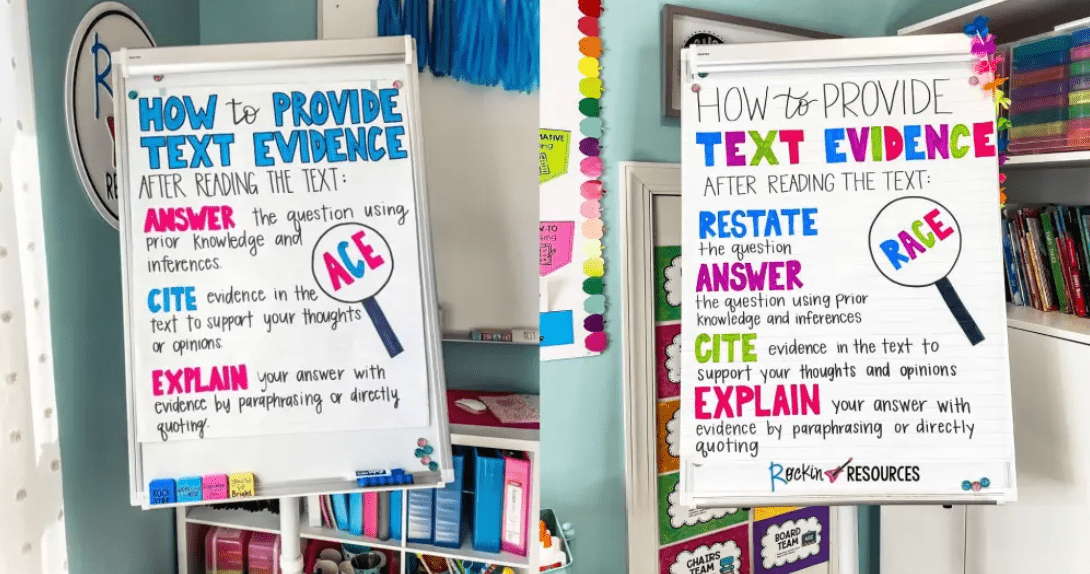 HOW to PROVIDE
TEXT EVIDENCE
AFTER READING THE TEXT:
ANSWER the question using
prior knowledge and
inferences.
ACE
CITE evidence in the
text to support your thoughts
or opinions.
EXPLAIN your answer with
evidence by paraphrasing or directly
quoting.
HOW to PROVIDE
TEXT EVIDENCE
AFTER READING THE TEXT:
RESTATE
the question
RACE
ANSWER
the question using prior
knowledge and inferences
CITE evidence in the text to
support your thoughts and opinions
EXPLAIN your answer with
evidence by paraphrasing or directly
quoting
Rockin RESOURCES
CHAIRS
TEAM
BOARD
TEAM